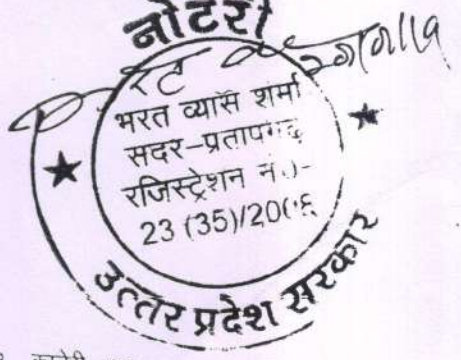 नोटरी
भरत व्यास शर्मा
सदर-प्रतापगढ़
रजिस्ट्रेशन नं०-
23 (35)/2006
उत्तर प्रदेश सरकार